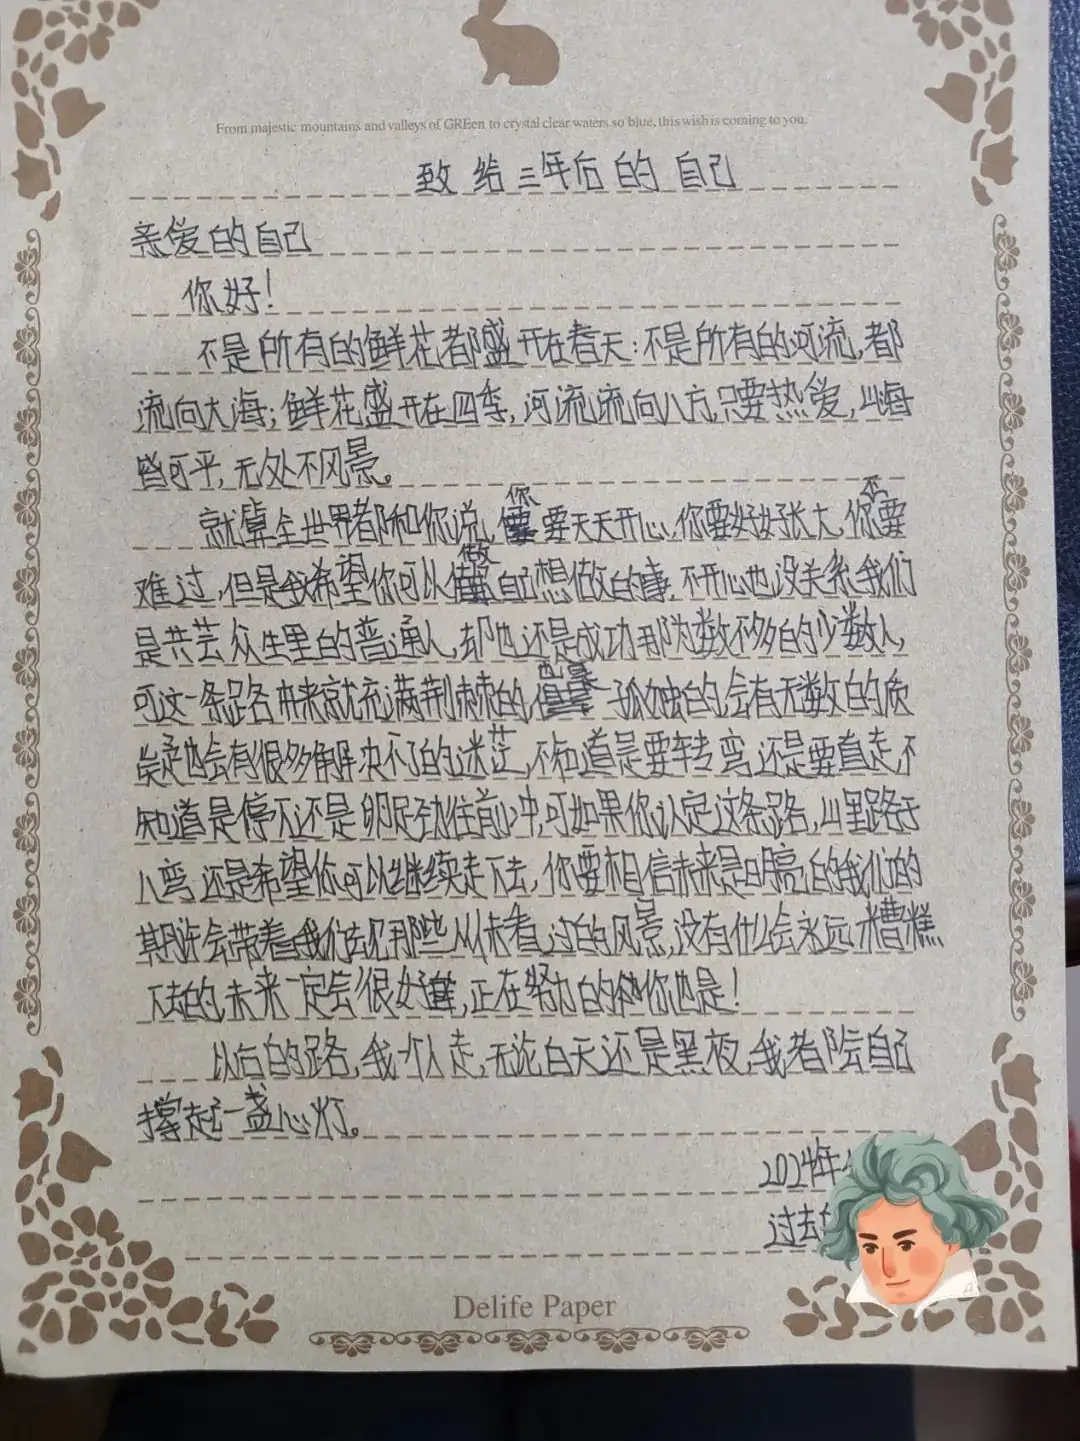 From majestic mountains and valleys of GREen to crystal clear waters so blue, this wish is coming to you.
致给三年后的自己
亲爱的自己
你好!
不是所有的鲜花,都盛开在春天:不是所有的河流,都
流向大海;鲜花盛开在四季,河流流向八方,只要热爱,山海
皆可平,无处不风景。
就算全世界都和你说,你要天天开心,你要好好长大,你不要
难过,但是我希望你可以做自己想做的事,不开心也没关系,我们
是共芸众生里的普通人,却也还是成功那为数不多的少数人,
可这一条路本来就充满荆棘的,也是孤独的会有无数的质
疑也会有很多解决不了的迷茫,不知道是要转弯还是要直走,不
知道是停下还是卯足劲往前冲,可如果你认定这条路,山里路十
八弯,还是希望你可以继续走下去,你要相信未来是明亮的我们的
期许会带着我们去见那些从未看过的风景,没有什么会永远糟糕
下去的,未来一定会很好,正在努力的你也是!
以后的路,我一个人走,无论白天还是黑夜,我都会自己
撑起一盏心灯。
2024年
过去
Delife Paper